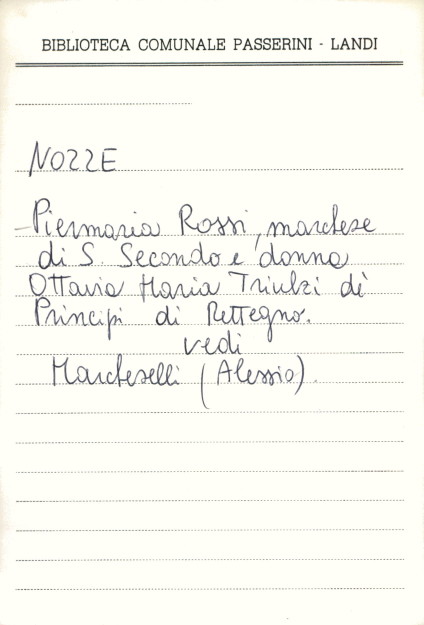 BIBLIOTECA COMUNALE PASSERINI - LANDI
NOZZE
Piermaria Rossi, marchese
di S. Secondo e donna
Ottavia Maria Triulzi dè
Principi di Rettegno.
vedi
Marcheselli (Alessio).